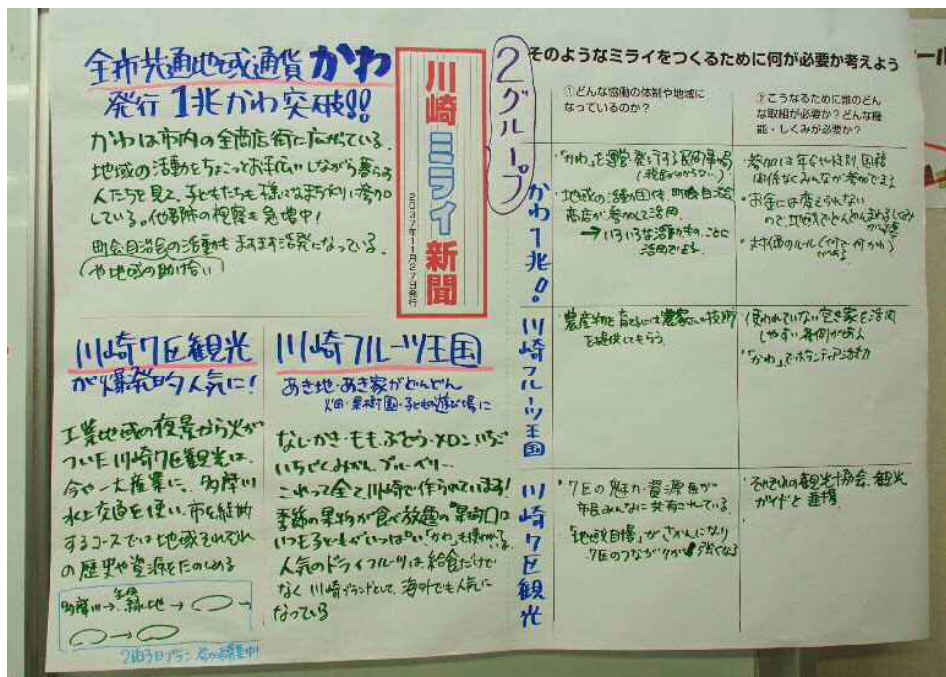 全市共通地域通貨かわ
発行1兆かわ突破!!
かわは市内の全商店街に広がっている。
地域の活動をちょこっとお手伝いしながら暮らす
人たちを見て、子どもたちも様々なまちづくりに参加
している。他都市の視察も急増中!
町会自治会の活動もますます活発になっている。
(や地域の助け合い)
川崎ミライ新聞
2037年11月27日発行
川崎7区観光
が爆発的人気に!
工業地域の夜景から火が
ついた川崎7区観光は、
今や一大産業に。多摩川
水上交通を使い、市を縦断
するコースでは地域それぞれ
の歴史や資源をたのしめる
多摩川→生田緑地→
2泊3日プラン 参加募集中!
川崎フルーツ王国
あき地・あき家がどんどん
畑・果樹園・子どもの遊び場に
なし・かき・もも・ぶどう・メロン・いちご
いちじく・みかん、ブルーベリー…
これって全て川崎で作られています!
季節の果物が食べ放題の
いつも子どもがいっぱい!「かわ」も
人気のドライフルーツは、給食だけで
なく川崎ブランドとして、海外でも人気に
なっている
2グループ
そのようなミライをつくるために何が必要か考えよう
①どんな協働の体制や地域に
なっているのか?
②こうなるために誰のどん
な取組が必要か?どんな機
能・しくみが必要か?
かわ1兆!!
・「かわ」を運営・発行する民間
・地域の活動団体、町内会自治会
商店が参加して活用
→いろいろな活動
活用できる
・参加は年令や性別、国籍
関係なくみんなが参加できる
・お金には変えられない
ので地域でどんどんまわるしくみ
・対価のルール
川崎フルーツ王国
・農産物を育てるには農家さんの技術
を提供してもらう
・使われていない空き家を活用
しやすい条例がある
・「かわ」でボランティア活動
川崎7区観光
・7区の魅力・資源が
市民みんなに共有されている。
・「地域自慢」がさかんになり
7区のつながりが強くなる
・それぞれの観光協会、観光
ガイドと連携